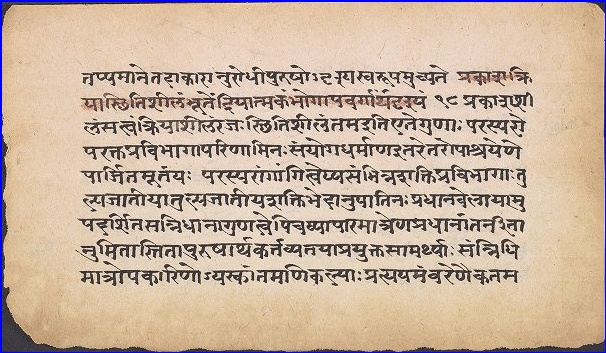 तप्पमानेतदाकारानुरोधीपुरुषोऽदृश्यस्वरूपमुच्यते प्रकाशक्रि
यास्छितिशीलंभूतेंद्रियात्मकंभोगापवर्गार्थंदृश्यं १८ प्रकाशशी
लंसत्वंक्रियाशीलंरजःस्छितिशीलंतमइतिएतेगुणाः परस्परो
परक्तप्रविभागापरिणामिनः संयोगधर्माणइतरेतरोपाश्रयणे
पार्जितमूर्तयः परस्परांगांगित्वेप्यसंभिन्नशक्तिप्रविभागाःतु
ल्यजातीयातुल्यजातीयशक्तिभेदानुपातिनःप्रधानवेलायामु
पदर्शितसन्निधानागुणत्वेपिचव्यापारमात्रेणप्रधानांतर्नीता
नुमितास्तितापुरुषार्थकर्तव्यतयाप्रयुक्तसामर्थ्याः संन्निधि
मात्रोपकारिणोऽयस्कांतमणिकल्पाःप्रत्ययमंतरेणैकतम